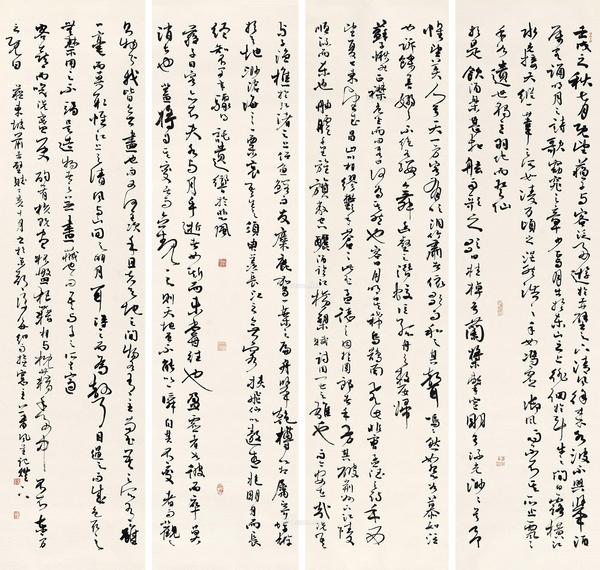 壬戌之秋七月既望蘇子與客泛舟遊於赤壁之下清風徐來水波不興舉酒
屬客誦明月之詩歌窈窕之章少焉月出於東山之上徘徊於斗牛之間白露橫江
水光接天縱一葦之所如凌萬頃之茫然浩浩乎如馮虛御風而不知其所止飄飄
乎如遺世獨立羽化而登仙
於是飲酒樂甚扣舷而歌之歌曰桂棹兮蘭槳擊空明兮溯流光渺渺兮予
懷望美人兮天一方客有吹洞簫者依歌而和之其聲嗚嗚然如怨如慕如泣
如訴餘音嫋嫋不絕如縷舞幽壑之潛蛟泣孤舟之嫠婦
蘇子愀然正襟危坐而問客曰何為其然也客曰月明星稀烏鵲南飛此非孟德之詩乎西
望夏口東望武昌山川相繆鬱乎蒼蒼此非孟德之困於周郎者乎方其破荊州下江陵
順流而東也舳艫千里旌旗蔽空釃酒臨江橫槊賦詩固一世之雄也而今安在哉況吾
與子漁樵於江渚之上侶魚蝦而友麋鹿駕一葉之扁舟舉匏樽以相屬寄蜉蝣
於天地渺滄海之一粟哀吾生之須臾羨長江之無窮挾飛仙以遨遊抱明月而長
終知不可乎驟得託遺響於悲風
蘇子曰客亦知夫水與月乎逝者如斯而未嘗往也盈虛者如彼而卒莫
消長也蓋將自其變者而觀之則天地曾不能以一瞬自其不變者而觀
之則物與我皆無盡也而又何羨乎且夫天地之間物各有主苟非吾之所有雖
一毫而莫取惟江上之清風與山間之明月耳得之而為聲目遇之而成色取之
無禁用之不竭是造物者之無盡藏也而吾與子之所共適
客喜而笑洗盞更酌肴核既盡杯盤狼藉相與枕藉乎舟中不知東方
之既白 蘇東坡前赤壁賦